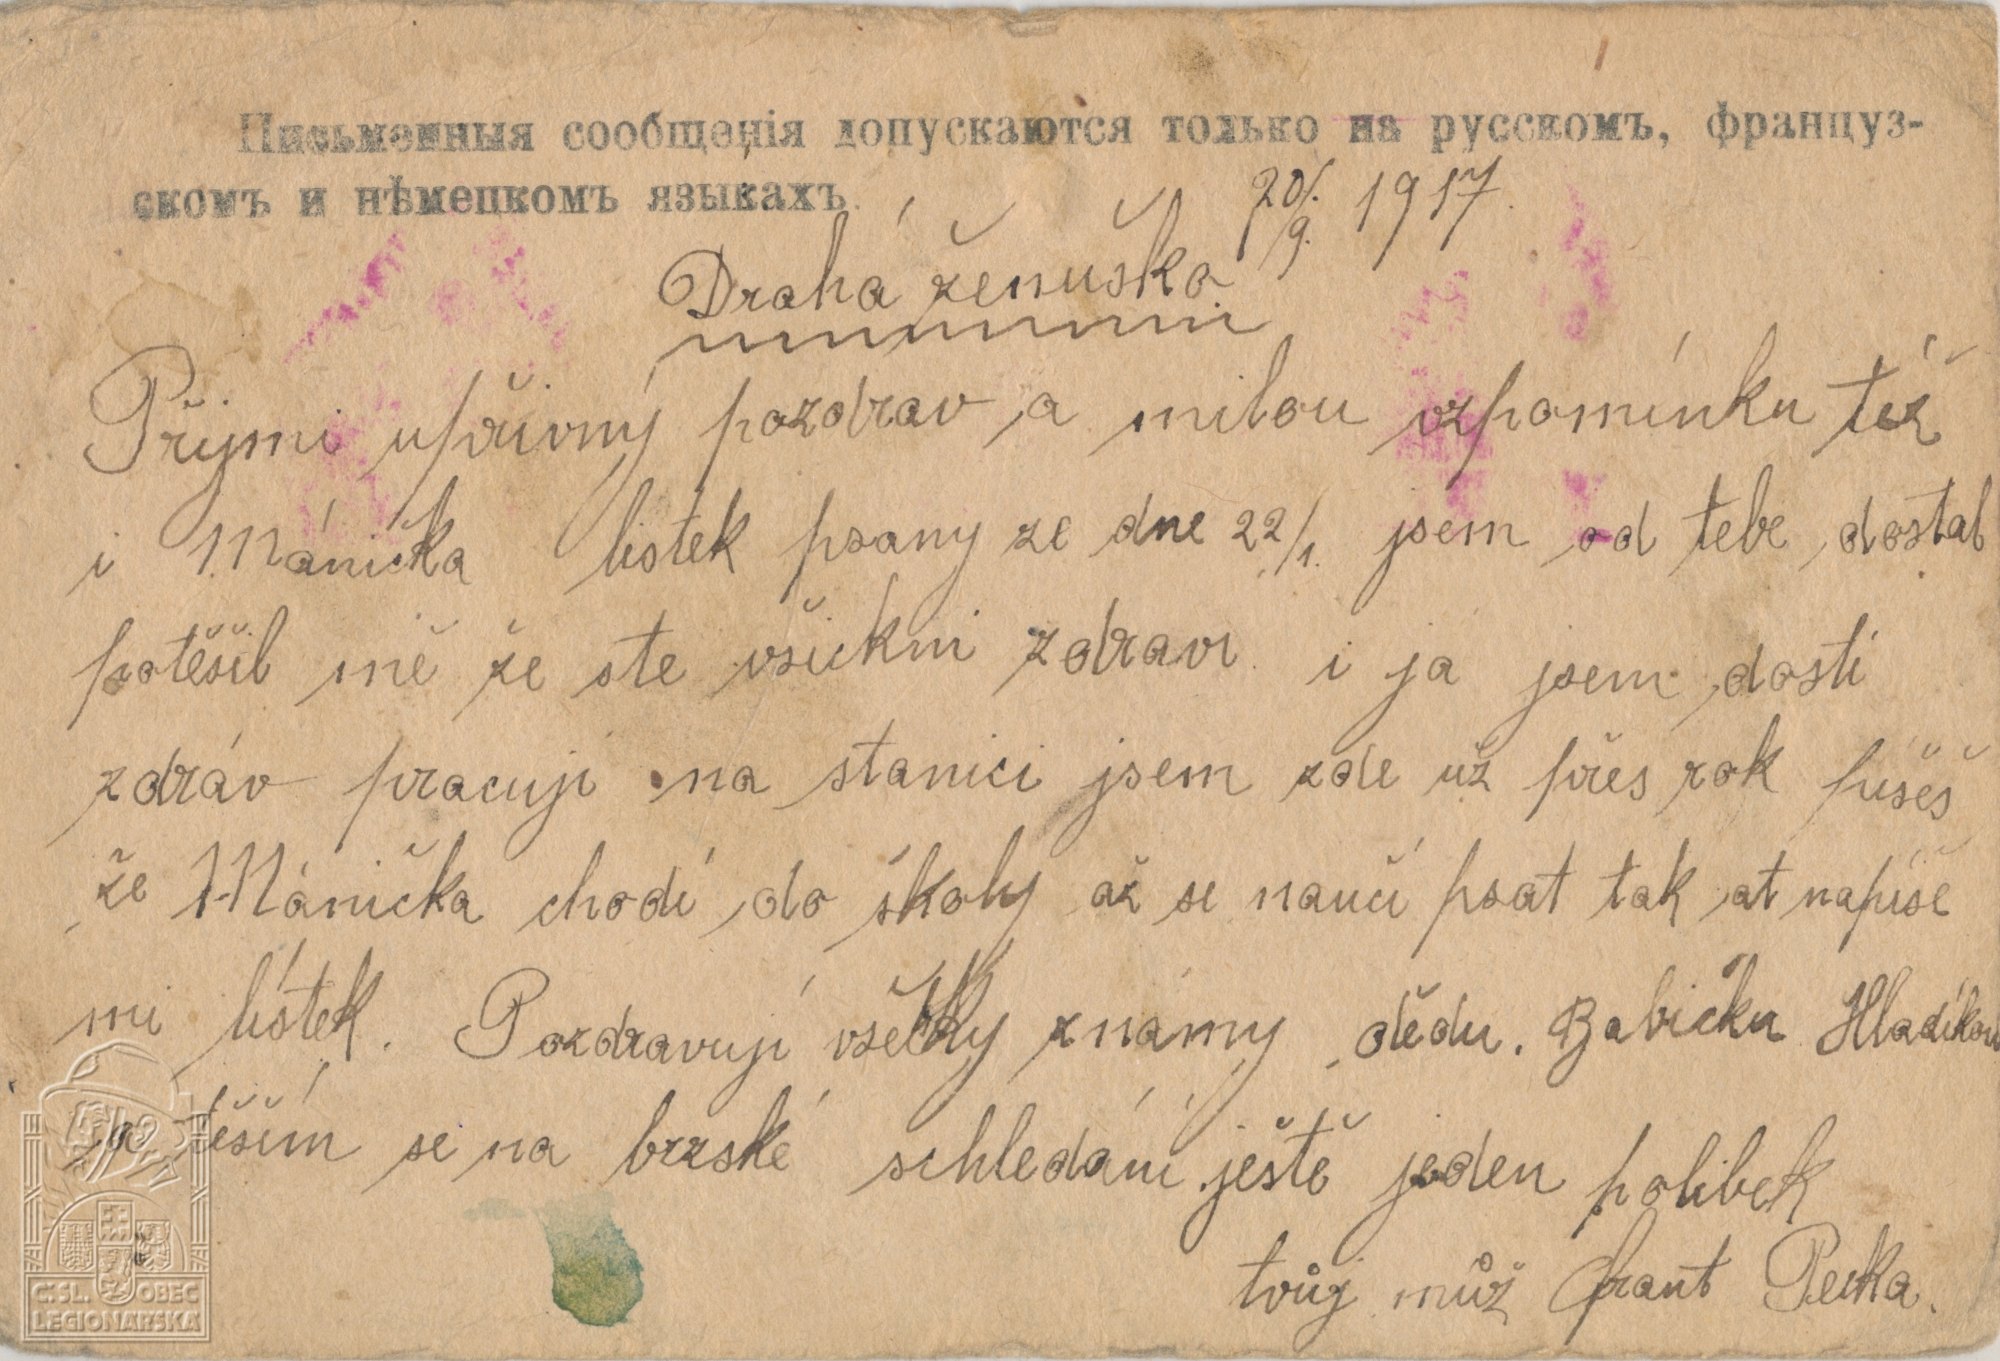 Письменныя сообщенія допускаются только на русскомъ, француз-
скомъ и нѣмецкомъ языкахъ.
20/9. 1917.
Drahá ženuško
Přijmi upřívný pozdrav a milou vzpomínku též
i Mánička lístek psany ze dne 22/1. jsem od tebe dostal
potěšil mě že ste všickni zdravi i ja jsem dosti
zdráv pracuji na stanici jsem zde už přes rok píšeš
že Mánička chodí do školy až se naučí psat tak at napíše
mi lístek. Pozdravuji všecky známy dědu. Babičku Hladíkovi
a těším se na brzské schledání ještě jeden polibek
tvůj můž Frant Pecka.
C.SL. OBEC
LEGIONÁŘSKÁ